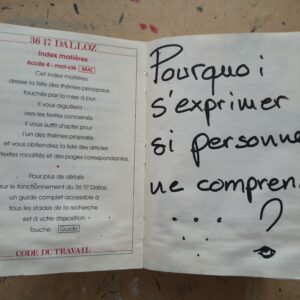 36 17 DALLOZ
Index matières
Accès 4 - mot-clé MAJ
Cet index matières
dresse la liste des thèmes principaux
touchés par la mise à jour.
Il vous aiguillera
vers les textes concernés.
Il vous suffit d'opter pour
l'un des thèmes proposés
et vous obtiendrez la liste des articles
textes modifiés et des pages correspondantes.
Pour plus de détails
sur le fonctionnement du 36 17 Dalloz,
un guide complet accessible à
tous les stades de la recherche
est à votre disposition.
Touche Guide
CODE DU TRAVAIL
Pourquoi
s'exprimer
si personne
ne compren
.... ?